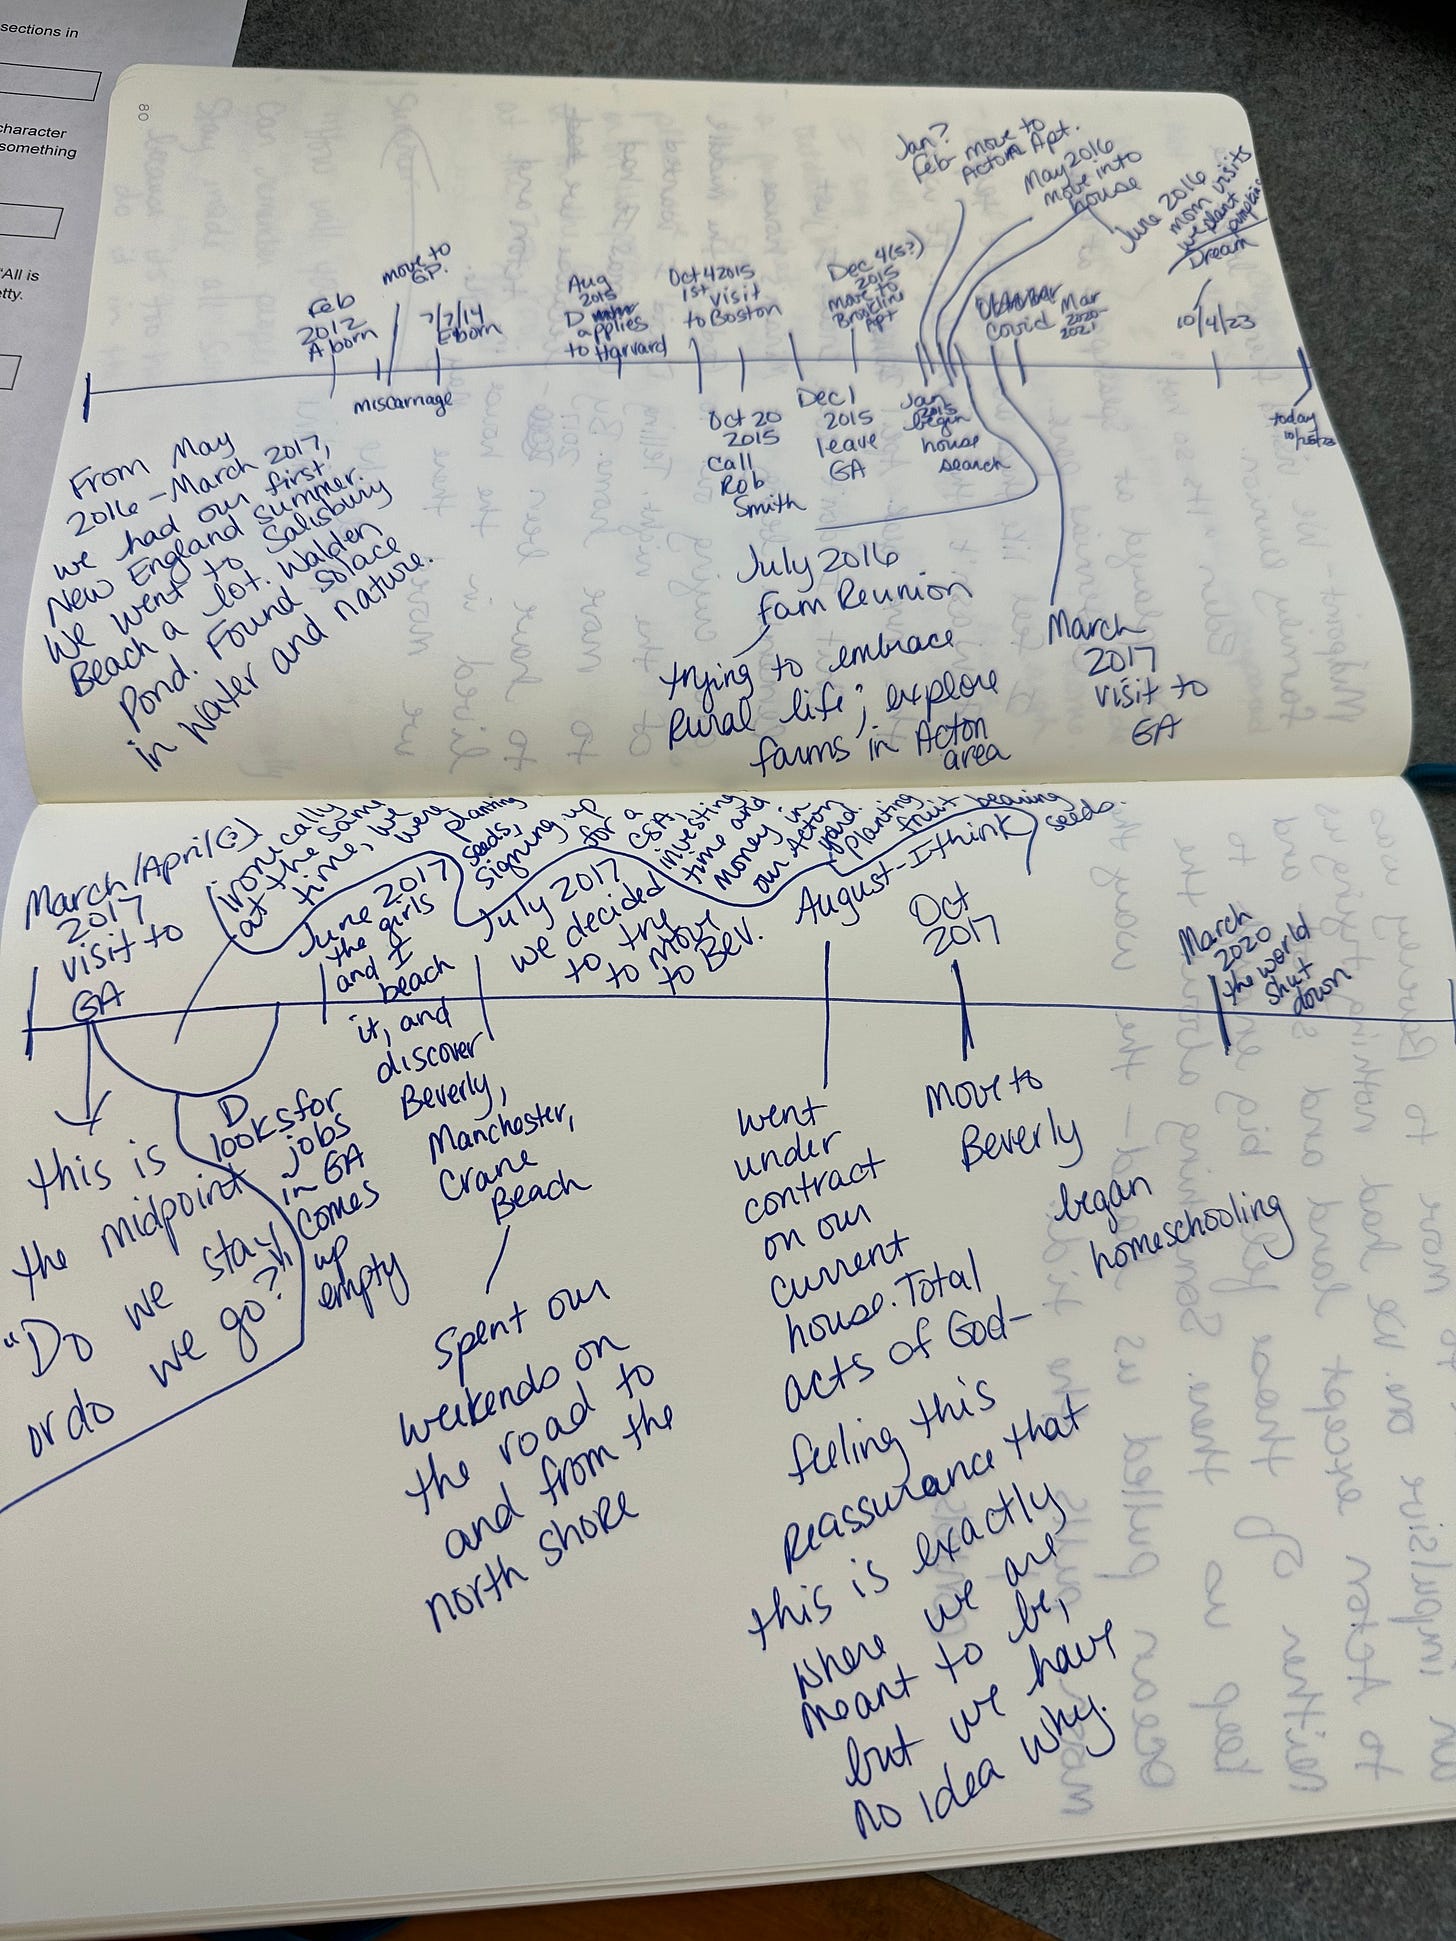 sections in
character
something
"All is
etty.
80
Feb
2012
A born
miscarriage
move to
GP.
7/7/14
E born
Aug
2015
D
applies
to Harvard
Oct 4 2015
1st visit
to Boston
Oct 20
2015
call
Rob
Smith
Dec 1
2015
leave
GA
Dec 4(5?)
2015
move to
Brookline
Apt
Jan?
Feb - move to
Acton Apt.
Jan
2015
begin
house
search
May 2016
move into
house
June 2016
mom visits
we plant
pumpkins
Dream
Covid
Mar
2020-
2021
10/4/23
today
10/25/23
From May
2016 - March 2017,
we had our first
New England summer.
We went to Salisbury
Beach a lot. Walden
Pond. Found solace
in water and nature.
July 2016
Fam Reunion
trying to embrace
Rural life; explore
farms in Acton
area
March
2017
visit to
GA
March/April(?)
2017
visit to
GA
(ironically
at the same
time, we
were planting
seeds,
signing up
for a
CSA,
investing
time and
money in
our Acton
yard.
planting
fruit bearing
seeds.
this is
the midpoint
"Do we stay,
or do we go?"
D
looks for
jobs
in GA
comes
up
empty
June 2017
the girls
and I
beach
it, and
discover
Beverly,
Manchester,
Crane
Beach
Spent our
weekends on
the road to
and from the
north shore
July 2017
we decided
to try
to move
to Bev.
August - I think
went
under
contract
on our
current
house. Total
acts of God -
feeling this
Reassurance that
this is exactly
where we are
meant to be,
but we have
no idea why.
Oct
2017
Move to
Beverly
began
homeschooling
March
2020
the world
shut
down